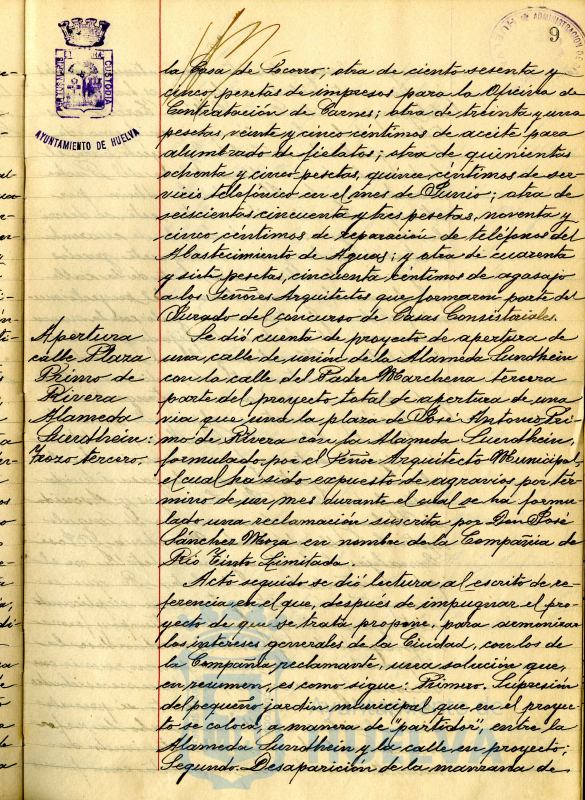 9
AYUNTAMIENTO DE HUELVA
CUSTODIA
la Casa de Socorro; otra de ciento sesenta y
cinco pesetas de impresos para la Oficina de
Contratación de Carnes; otra de treinta y una
pesetas, veinte y cinco céntimos de aceite para
alumbrado de fielatos; otra de quinientas
ochenta y cinco pesetas, quince céntimos de ser-
vicio telefónico en el mes de Junio; otra de
seiscientas cincuenta y tres pesetas, noventa y
cinco céntimos de reparación de teléfonos del
Abastecimiento de Aguas; y otra de cuarenta
y siete pesetas, cincuenta céntimos de agasajo
a los Señores Arquitectos que formaron parte del
Jurado del concurso de Casas Consistoriales.
Apertura
calle Plaza
Primo de
Rivera
Alameda
Sundhein:
Trozo tercero.
Se dió cuenta de proyecto de apertura de
una calle de unión de la Alameda Sundhein
con la calle del Padre Marchena tercera
parte del proyecto total de apertura de una
via que una la plaza de José Antonio Pri-
mo de Rivera con la Alameda Sundhein,
formulado por el Señor Arquitecto Municipal,
el cual ha sido expuesto de agravios por tér-
mino de un mes durante el cual se ha formu-
lado una reclamación suscrita por Don José
Sánchez Mora en nombre de la Compañia de
Rio Tinto Limitada.
Acto seguido se dió lectura al escrito de re-
ferencia en el que, después de impugnar el pro-
yecto de que se trata propone, para armonizar
los intereses generales de la Ciudad, con los de
la Compañia reclamante, una solución que,
en resumen, es como sigue: Primero. Supresión
del pequeño jardin municipal que en el proyec-
to se coloca, a manera de "partidor", entre la
Alameda Sundhein y la calle en proyecto;
Segundo. Desaparición de la manzana de